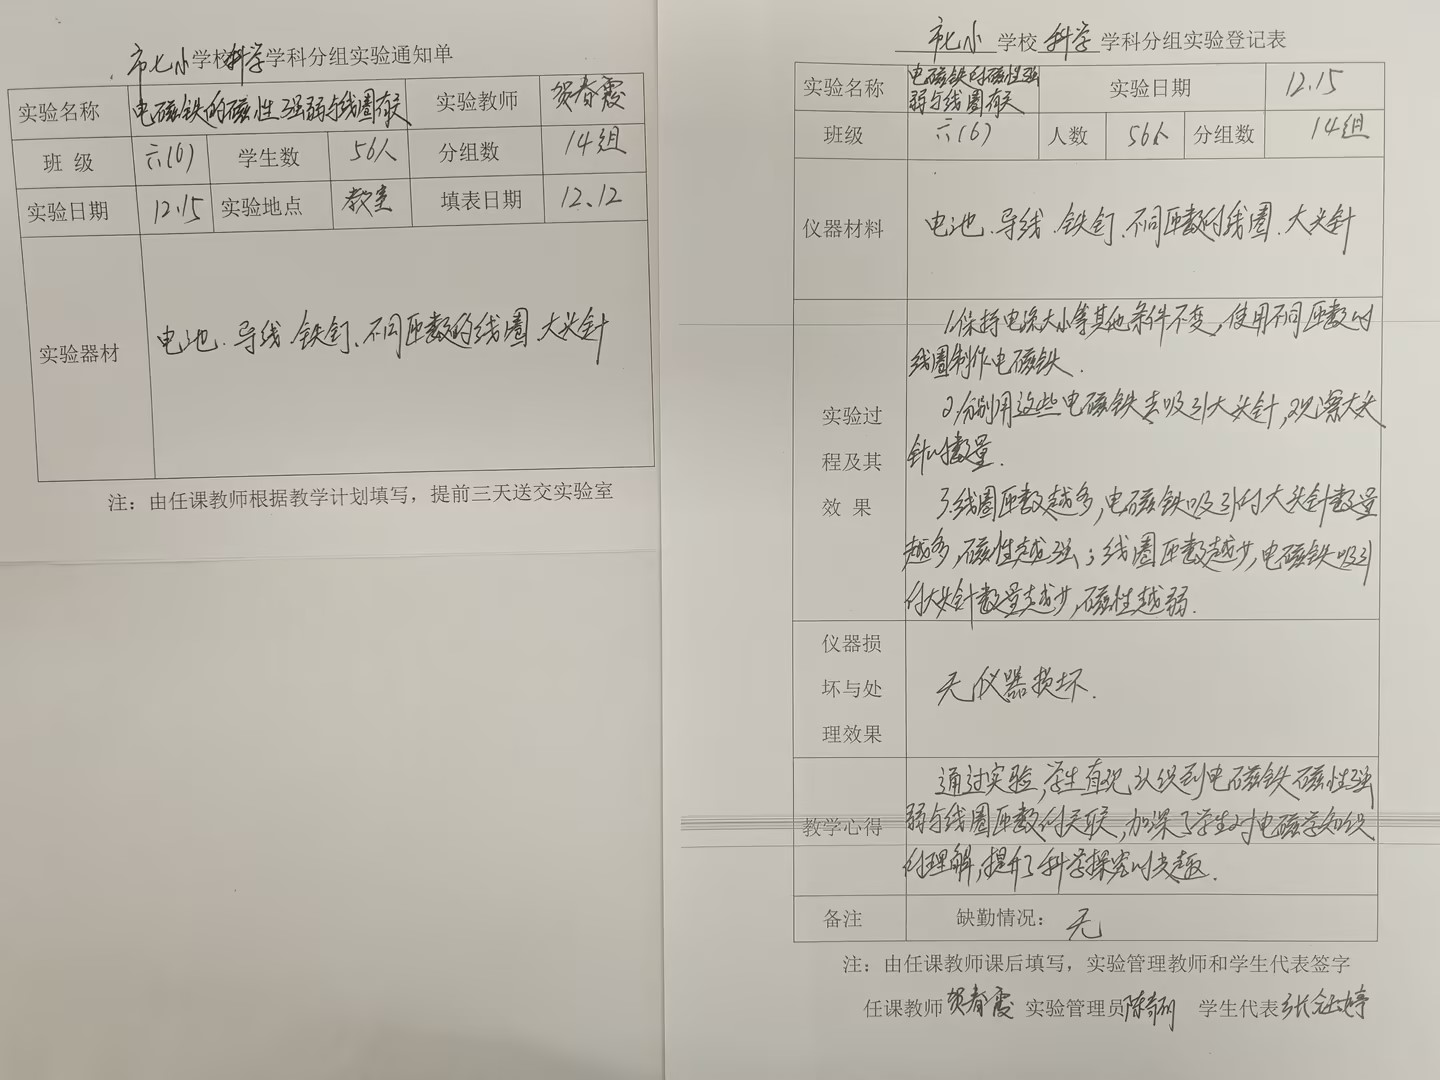 市七小学校科学学科分组实验通知单
实验名称 电磁铁的磁性强弱与线圈有关 实验教师 贺春霞
班 级 六(6) 学生数 56人 分组数 14组
实验日期 12.15 实验地点 教室 填表日期 12.12
实验器材 电池、导线、铁钉、不同匝数的线圈、大头针
注：由任课教师根据教学计划填写，提前三天送交实验室
市七小 学校 科学 学科分组实验登记表
实验名称 电磁铁的磁性强
弱与线圈有关 实验日期 12.15
班级 六(6) 人数 56人 分组数 14组
仪器材料 电池、导线、铁钉、不同匝数的线圈、大头针
实验过
程及其
效 果
1.保持电流大小等其他条件不变，使用不同匝数的
线圈制作电磁铁.
2.分别用这些电磁铁去吸引大头针，观察大头
针的数量.
3.线圈匝数越多，电磁铁吸引的大头针数量
越多，磁性越强；线圈匝数越少，电磁铁吸引
的大头针数量越少，磁性越弱.
仪器损
坏与处
理效果
无仪器损坏.
教学心得
通过实验，学生直观认识到电磁铁磁性强
弱与线圈匝数的关联，加深了学生对电磁学知识
的理解，提升了科学探究的兴趣.
备注 缺勤情况： 无
注：由任课教师课后填写，实验管理教师和学生代表签字
任课教师 贺春霞 实验管理员 学生代表